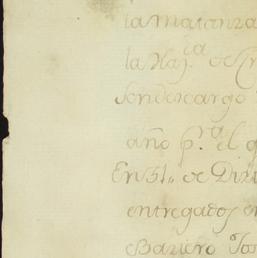 la matanza
la Haz.ᵈᵃ de
en descargo
año p.ʳᵃ el q
En 31,, de Dizi
entregados en
Baquero Jo